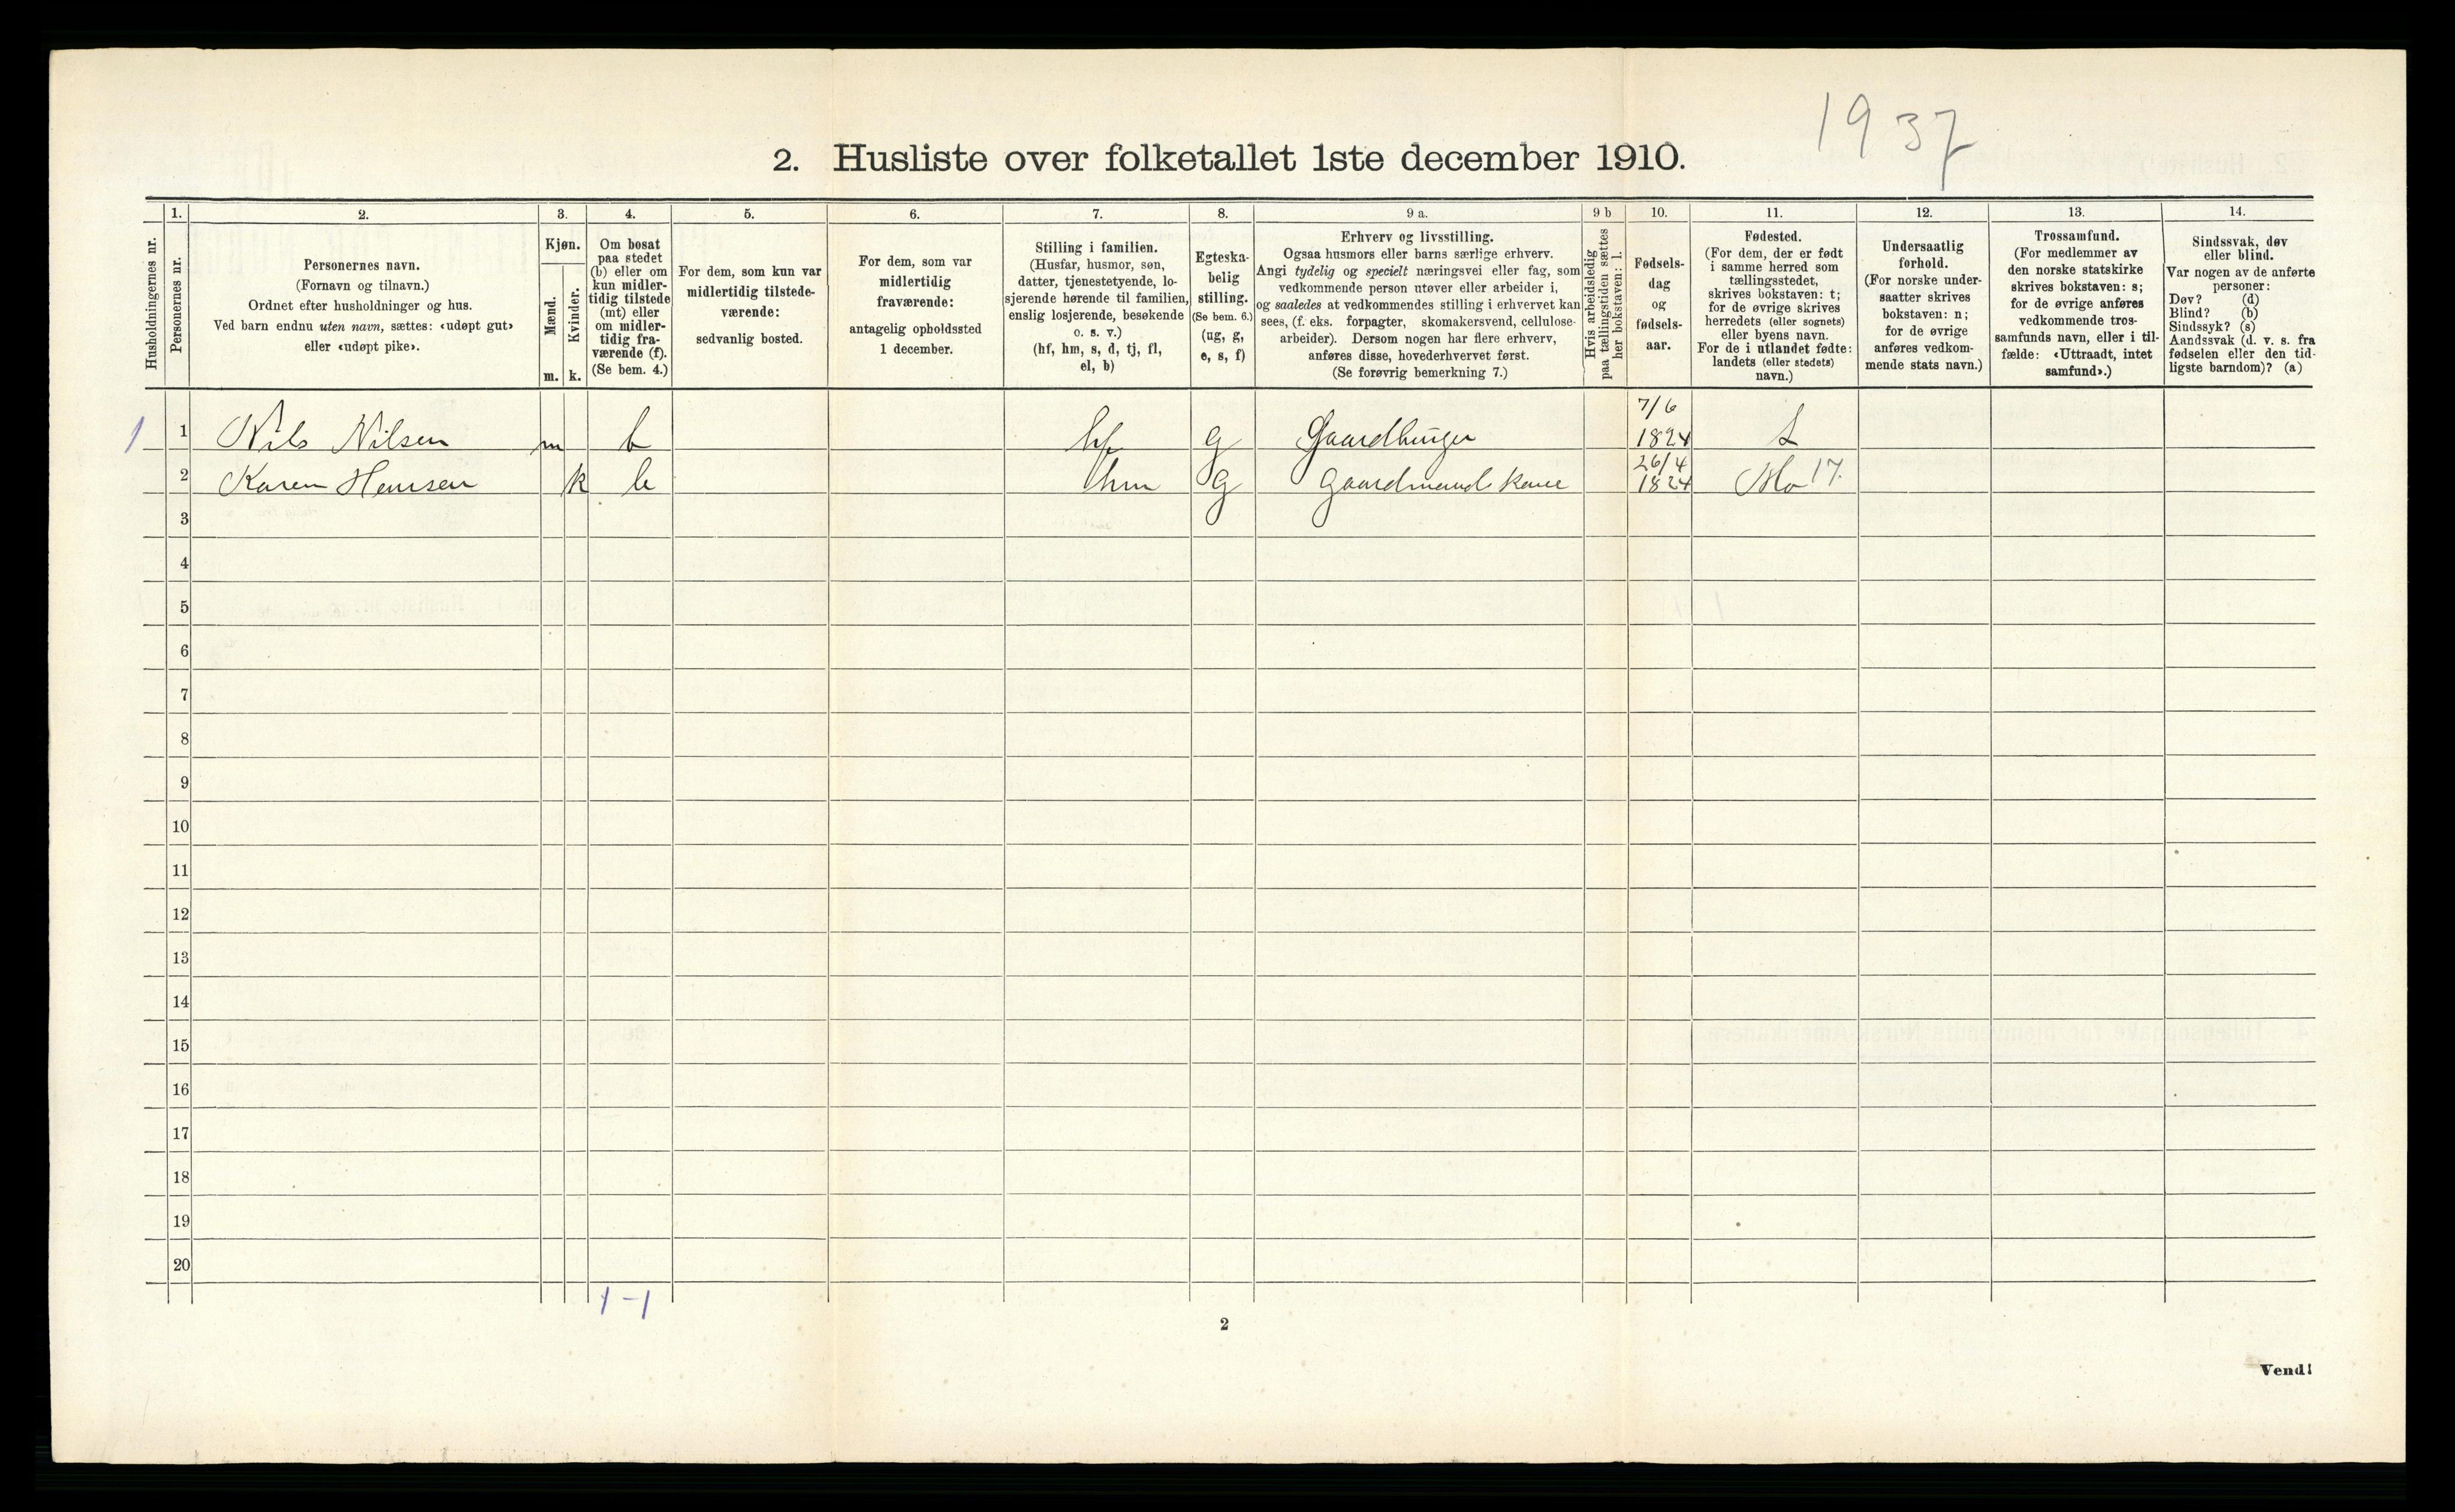 1937
2. Husliste over folketallet 1ste december 1910.
1. 2. 3. 4. 5. 6. 7. 8. 9 a. 9 b 10. 11. 12. 13. 14.
Husholdningernes nr.
Personernes nr.
Personernes navn.
(Fornavn og tilnavn.)
Ordnet efter husholdninger og hus.
Ved barn endnu uten navn, sættes: «udøpt gut»
eller «udøpt pike».
Kjøn.
Mænd.
Kvinder.
m. k.
Om bosat
paa stedet
(b) eller om
kun midler-
tidig tilstede
(mt) eller
om midler-
tidig fra-
værende (f).
(Se bem. 4.)
For dem, som kun var
midlertidig tilstede-
værende:
sedvanlig bosted.
For dem, som var
midlertidig
fraværende:
antagelig opholdssted
1 december.
Stilling i familien.
(Husfar, husmor, søn,
datter, tjenestetyende, lo-
sjerende hørende til familien,
enslig losjerende, besøkende
o. s. v.)
(hf, hm, s, d, tj, fl,
el, b)
Egteska-
belig
stilling.
(Se bem. 6.)
(ug, g,
e, s, f)
Erhverv og livsstilling.
Ogsaa husmors eller barns særlige erhverv.
Angi tydelig og specielt næringsvei eller fag, som
vedkommende person utøver eller arbeider i,
og saaledes at vedkommendes stilling i erhvervet kan
sees, (f. eks. forpagter, skomakersvend, cellulose-
arbeider). Dersom nogen har flere erhverv,
anføres disse, hovederhvervet først.
(Se forøvrig bemerkning 7.)
Hvis arbeidsledig
paa tællingstiden sættes
her bokstaven: l.
Fødsels-
dag
og
fødsels-
aar.
Fødested.
(For dem, der er født
i samme herred som
tællingsstedet,
skrives bokstaven: t;
for de øvrige skrives
herredets (eller sognets)
eller byens navn.
For de i utlandet fødte:
landets (eller stedets)
navn.)
Undersaatlig
forhold.
(For norske under-
saatter skrives
bokstaven: n;
for de øvrige
anføres vedkom-
mende stats navn.)
Trossamfund.
(For medlemmer av
den norske statskirke
skrives bokstaven: s;
for de øvrige anføres
vedkommende tros-
samfunds navn, eller i til-
fælde: «Uttraadt, intet
samfund».)
Sindssvak, døv
eller blind.
Var nogen av de anførte
personer:
Døv? (d)
Blind? (b)
Sindssyk? (s)
Aandssvak (d. v. s. fra
fødselen eller den tid-
ligste barndom)? (a)
1 1 Nils Nilsen m b hf g Gaardbruger 7/6 1824
2 Karen Hansen k b hm g Gaardmand kone 26/4 1824 Mo 17.
3
4
5
6
7
8
9
10
11
12
13
14
15
16
17
18
19
20
1 – 1
2
Vend!